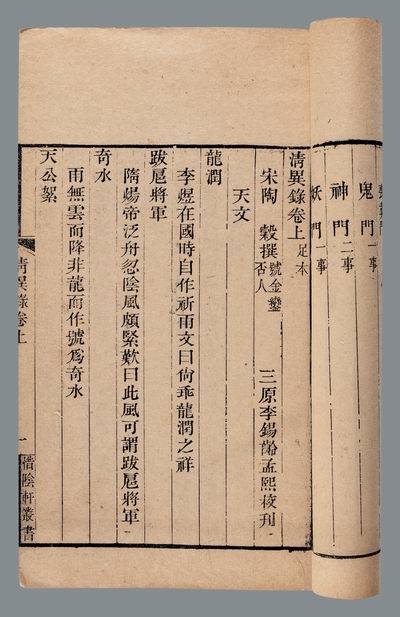 鬼門一事
神門二事
妖門一事
清異錄卷上足本
宋陶 穀撰號金鑾否人
三原李錫齡孟熙校刊
天文
龍潤
李煜在國時自作祈雨文曰尙乖龍潤之祥
跋扈將軍
隋煬帝泛舟忽陰風頗緊歎曰此風可謂跋扈將軍
奇水
雨無雲而降非龍而作號爲奇水
天公絮
清異錄卷上
一
惜陰軒叢書